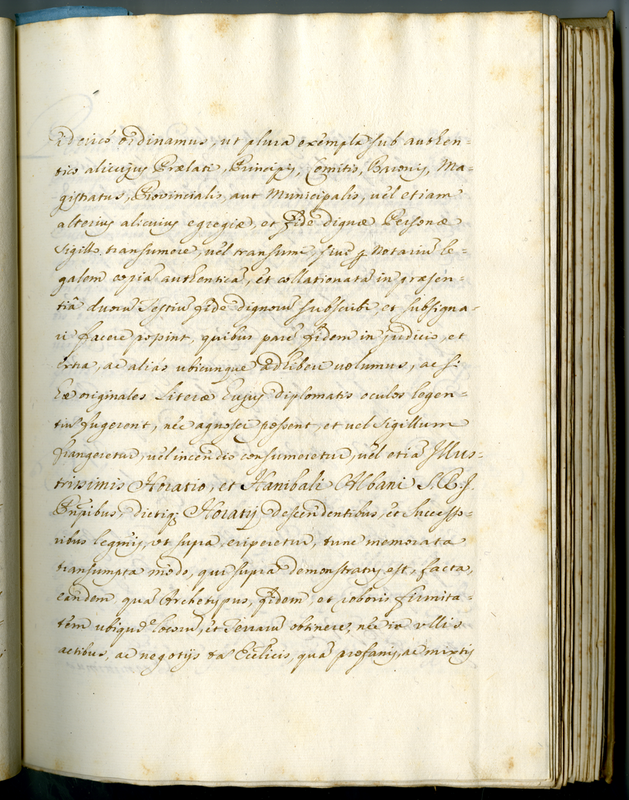 idcirco ordinamus, ut plura exempla sub authen=
tico alicujus Prælati, Principis, Comitis, Baronis, Ma=
gistratus, Provincialis, aut Municipalis, vel etiam
alterius alicuius egregiæ, et fide dignæ Personæ
Sigillo transumere, vel transumi, sive p Notariũ le=
galem copiã authenticã, et collationatã in præsen=
tiã duorũ Testiũ fide dignorũ subscribi, et subsigna=
ri facere possint, quibus parẽ fidem in judicijs, et
extra, ac alias ubicunque adhiberi volumus, ac si
dæ originales Literæ hujus diplomatis oculos legen=
tiũ fugerent, nec agnosci possent, et vel Sigillum
frangeretur, vel incendio consumeretur, vel etiã Illus=
trissimis Horatio, et Hanibali Albani S.R.I.
Pñpibus, dictiq; Horatij descendentibus, et Successo=
ribus legmis, ut supra, eriperetur, tunc memorata
transumpta modo, qui supra demonstratus est, facta,
eandem quã Archetypus, fidem, et roboris firmita=
tem ubiqué locorũ, et Terrarũ obtinere, nec in vllis
actibus, ac negotijs tã Ecclicis, quã profanis, ac mixtis